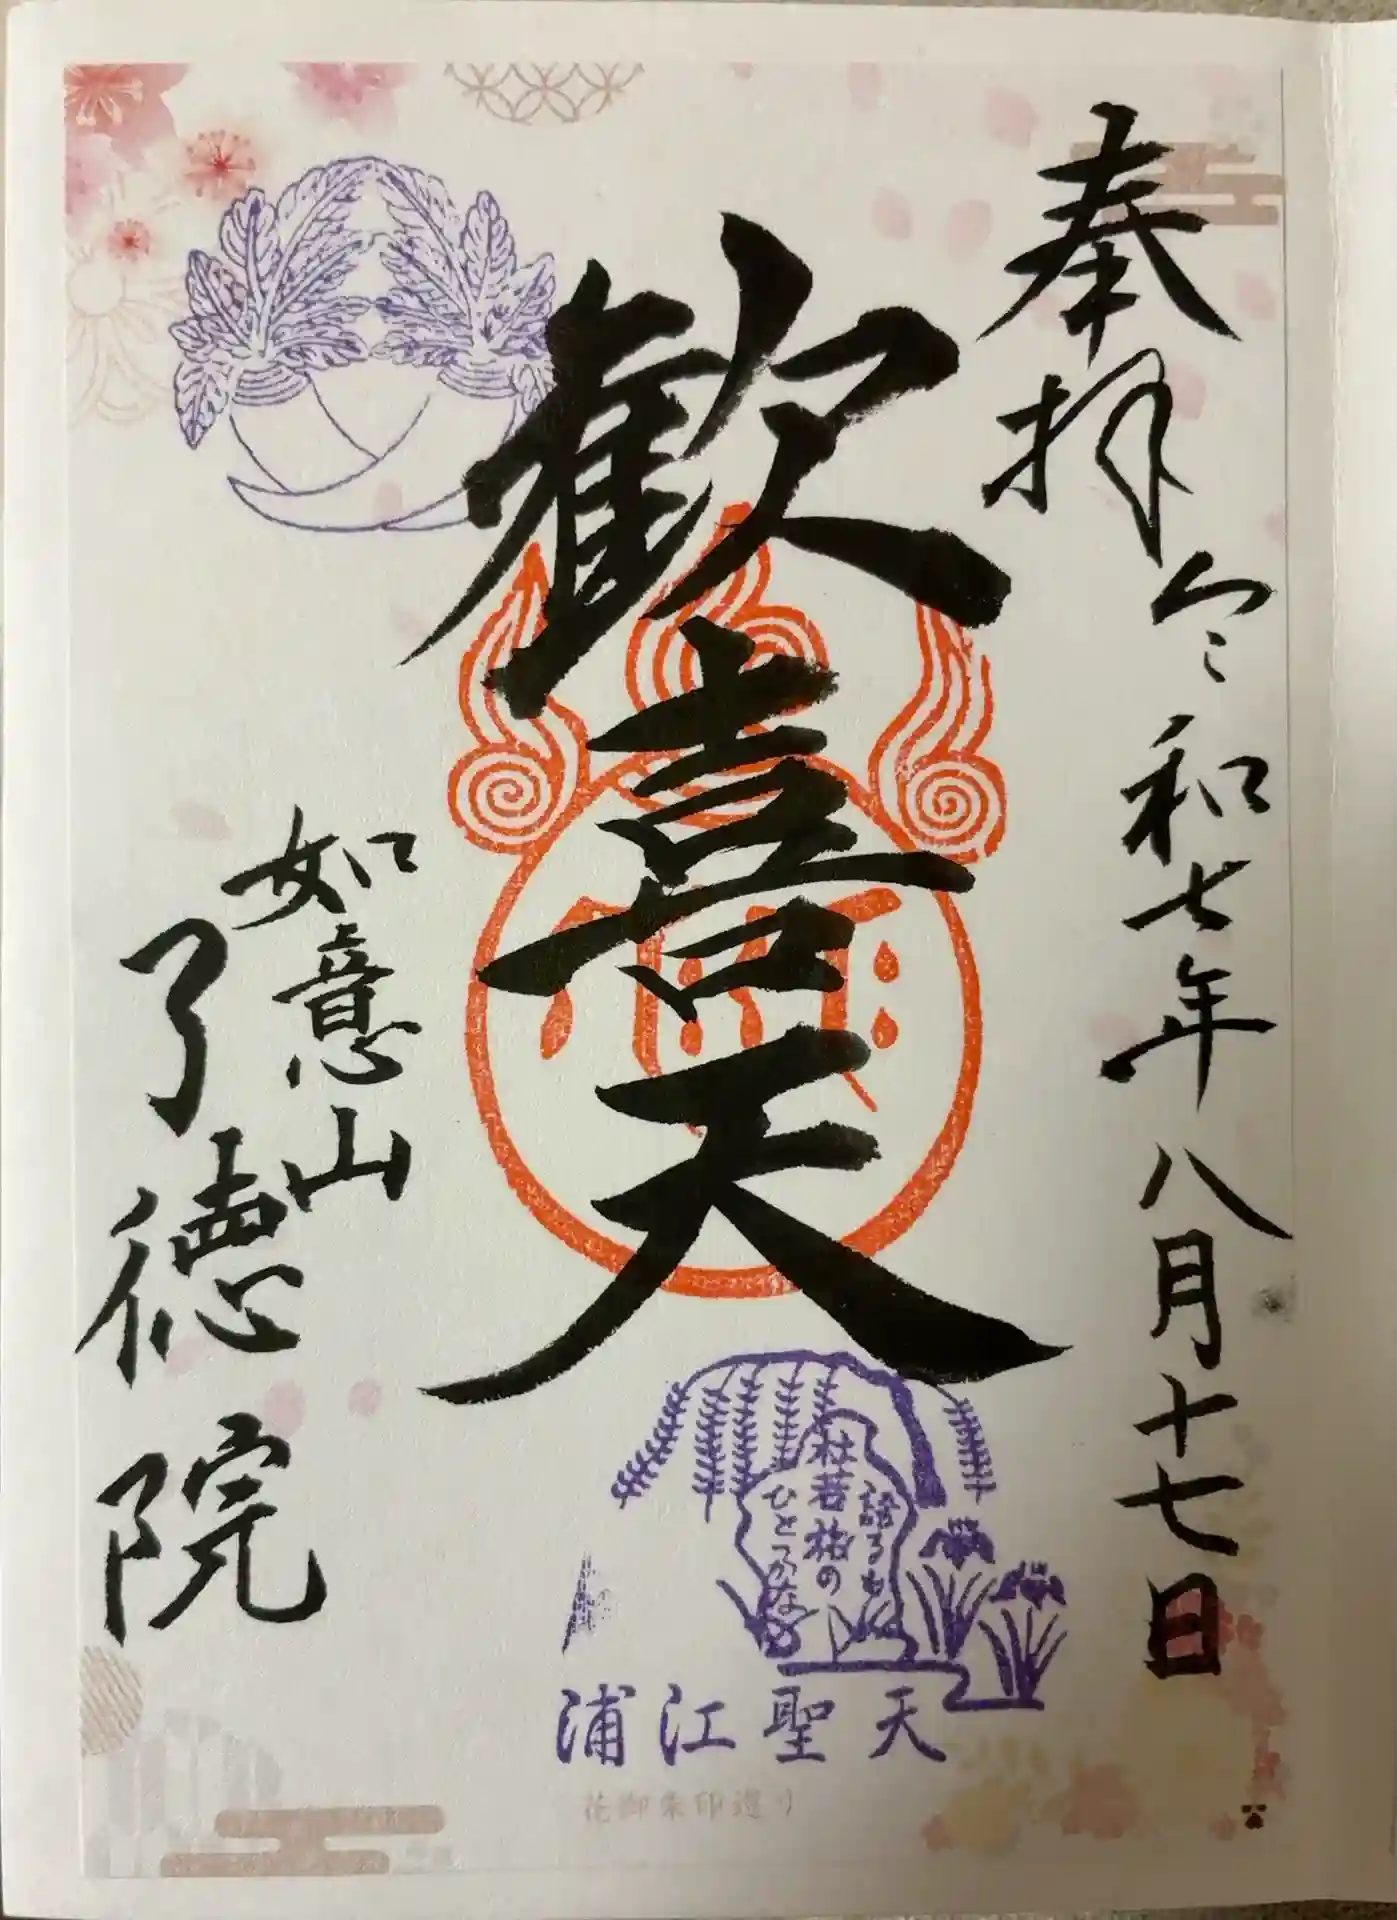 奉拝
令和七年八月十七日
歓喜天
如意山
了徳院
語るも
杜若旅の
ひとつかな
浦江聖天
花御朱印巡り